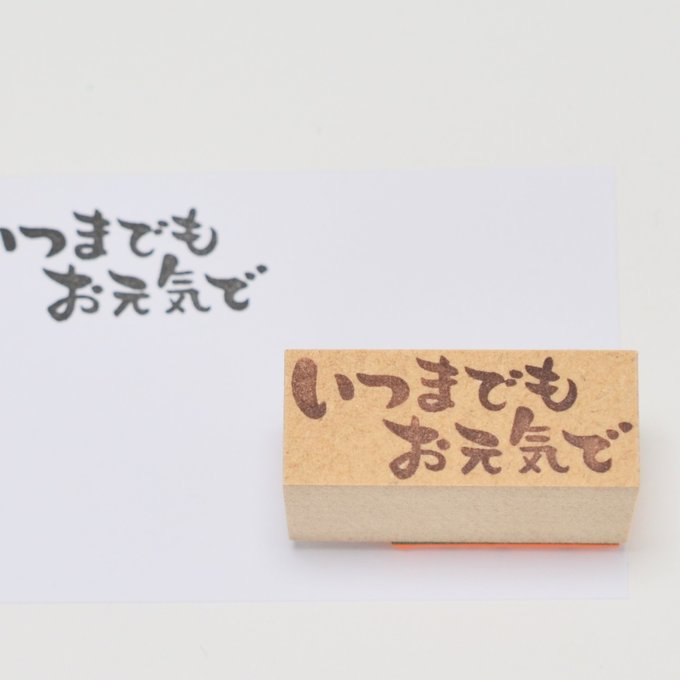 いつまでも
お元気で
いつまでも
お元気で